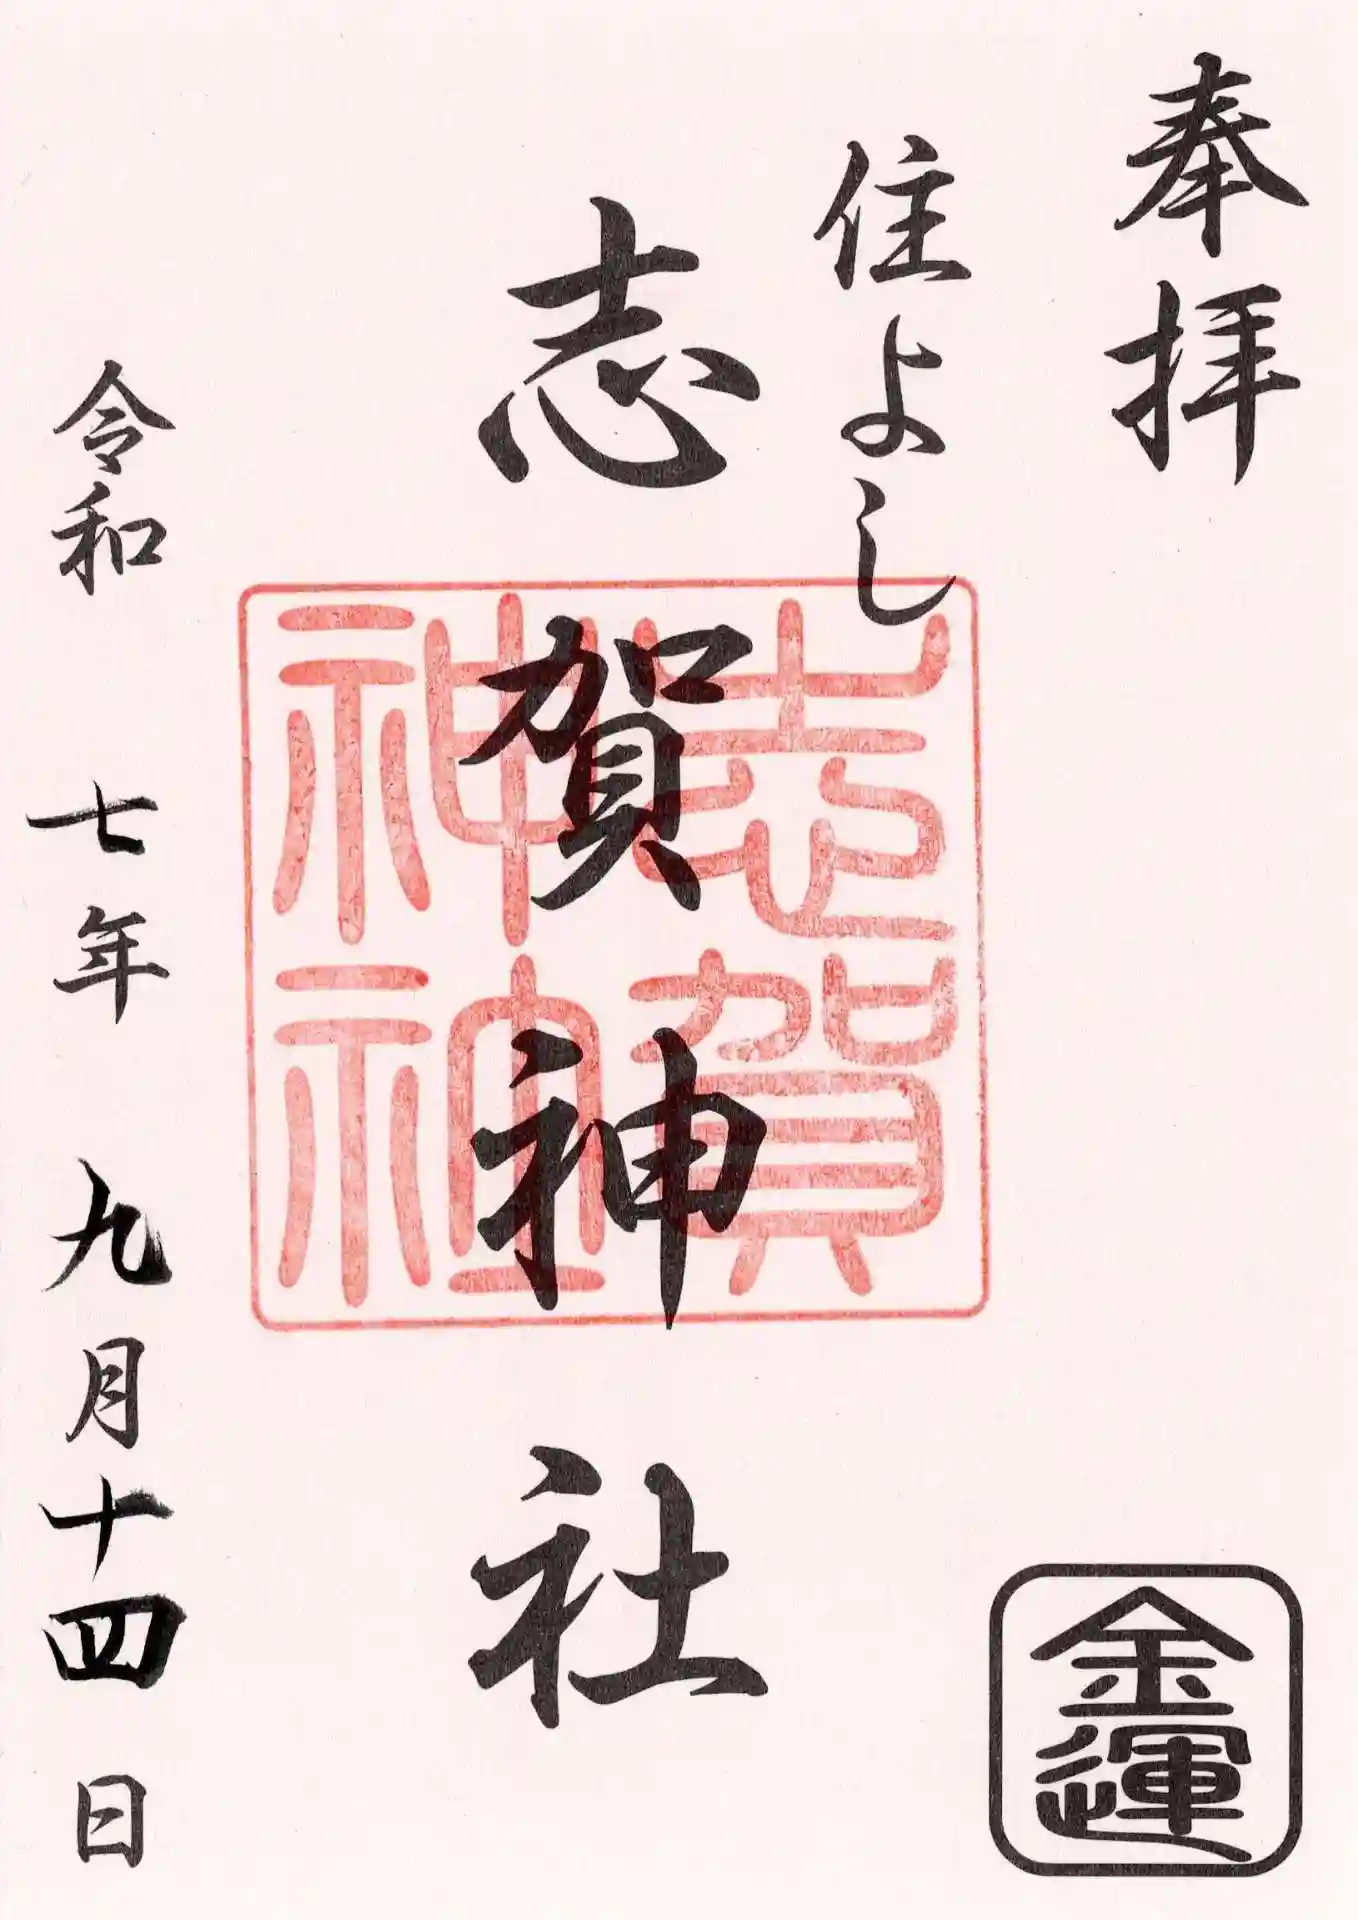 奉拝
住よし
志賀神社
志賀
神社
令和七年九月十四日
金運